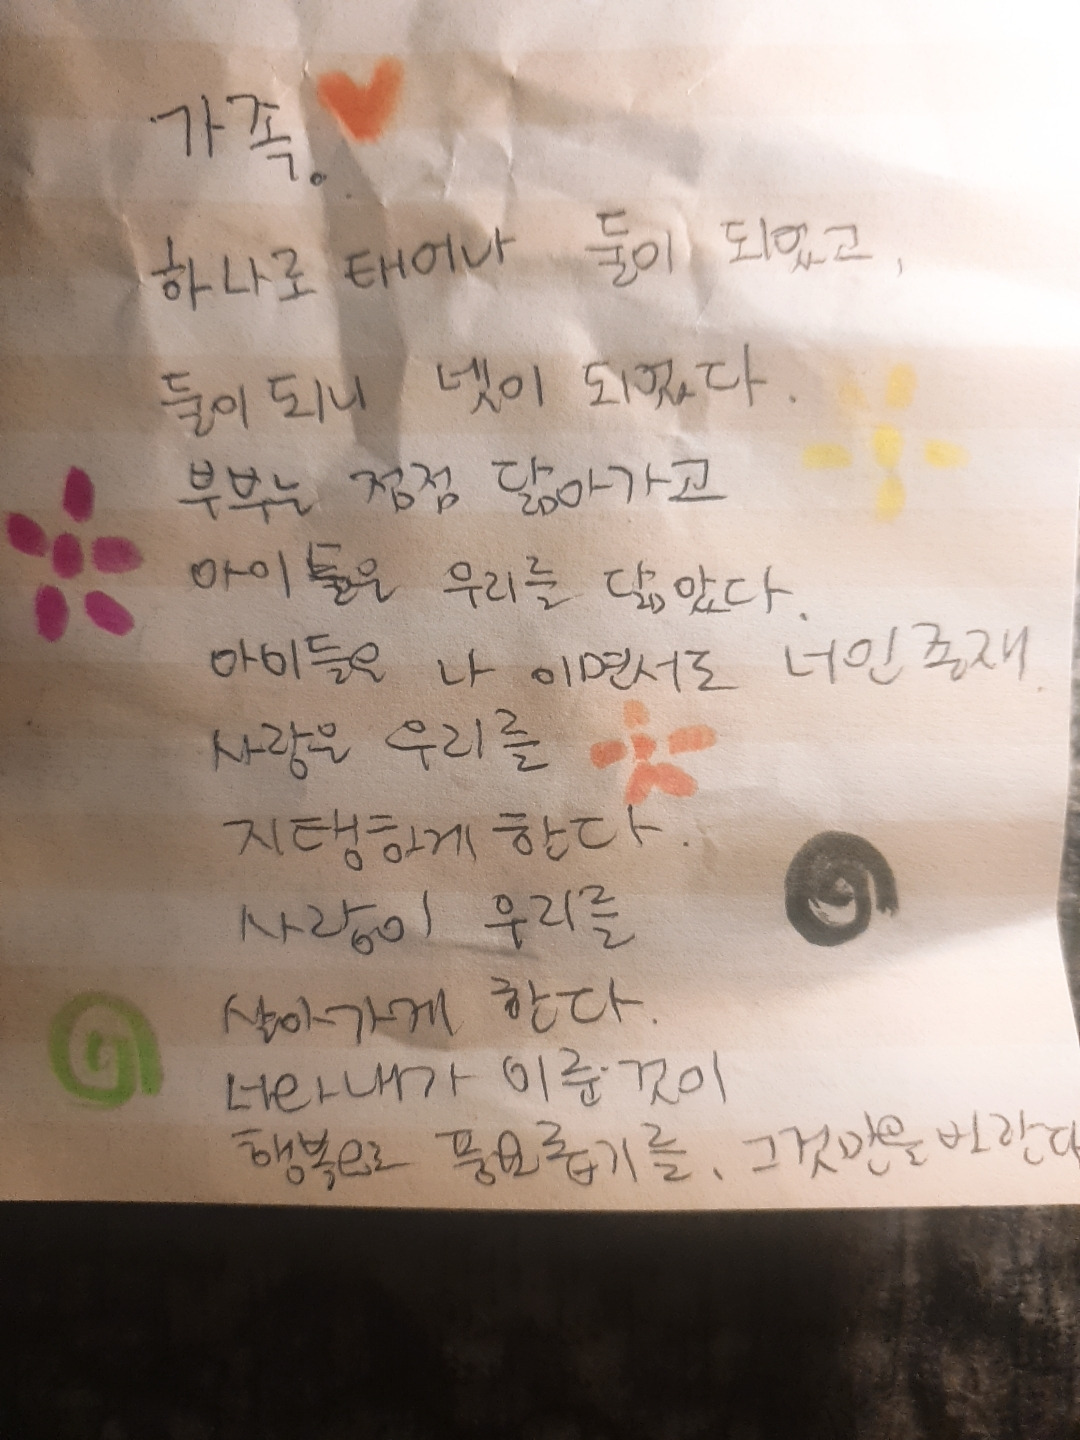 가족.
하나로 태어나 둘이 되었고,
둘이 되니 넷이 되었다.
부부는 점점 닮아가고
아이들은 우리를 닮았다.
아이들은 나 이면서도 너인 존재.
사랑은 우리를
지탱하게 한다.
사랑이 우리를
살아가게 한다.
너와 내가 이룬 것이
행복으로 풍요롭기를, 그것만을 바란다